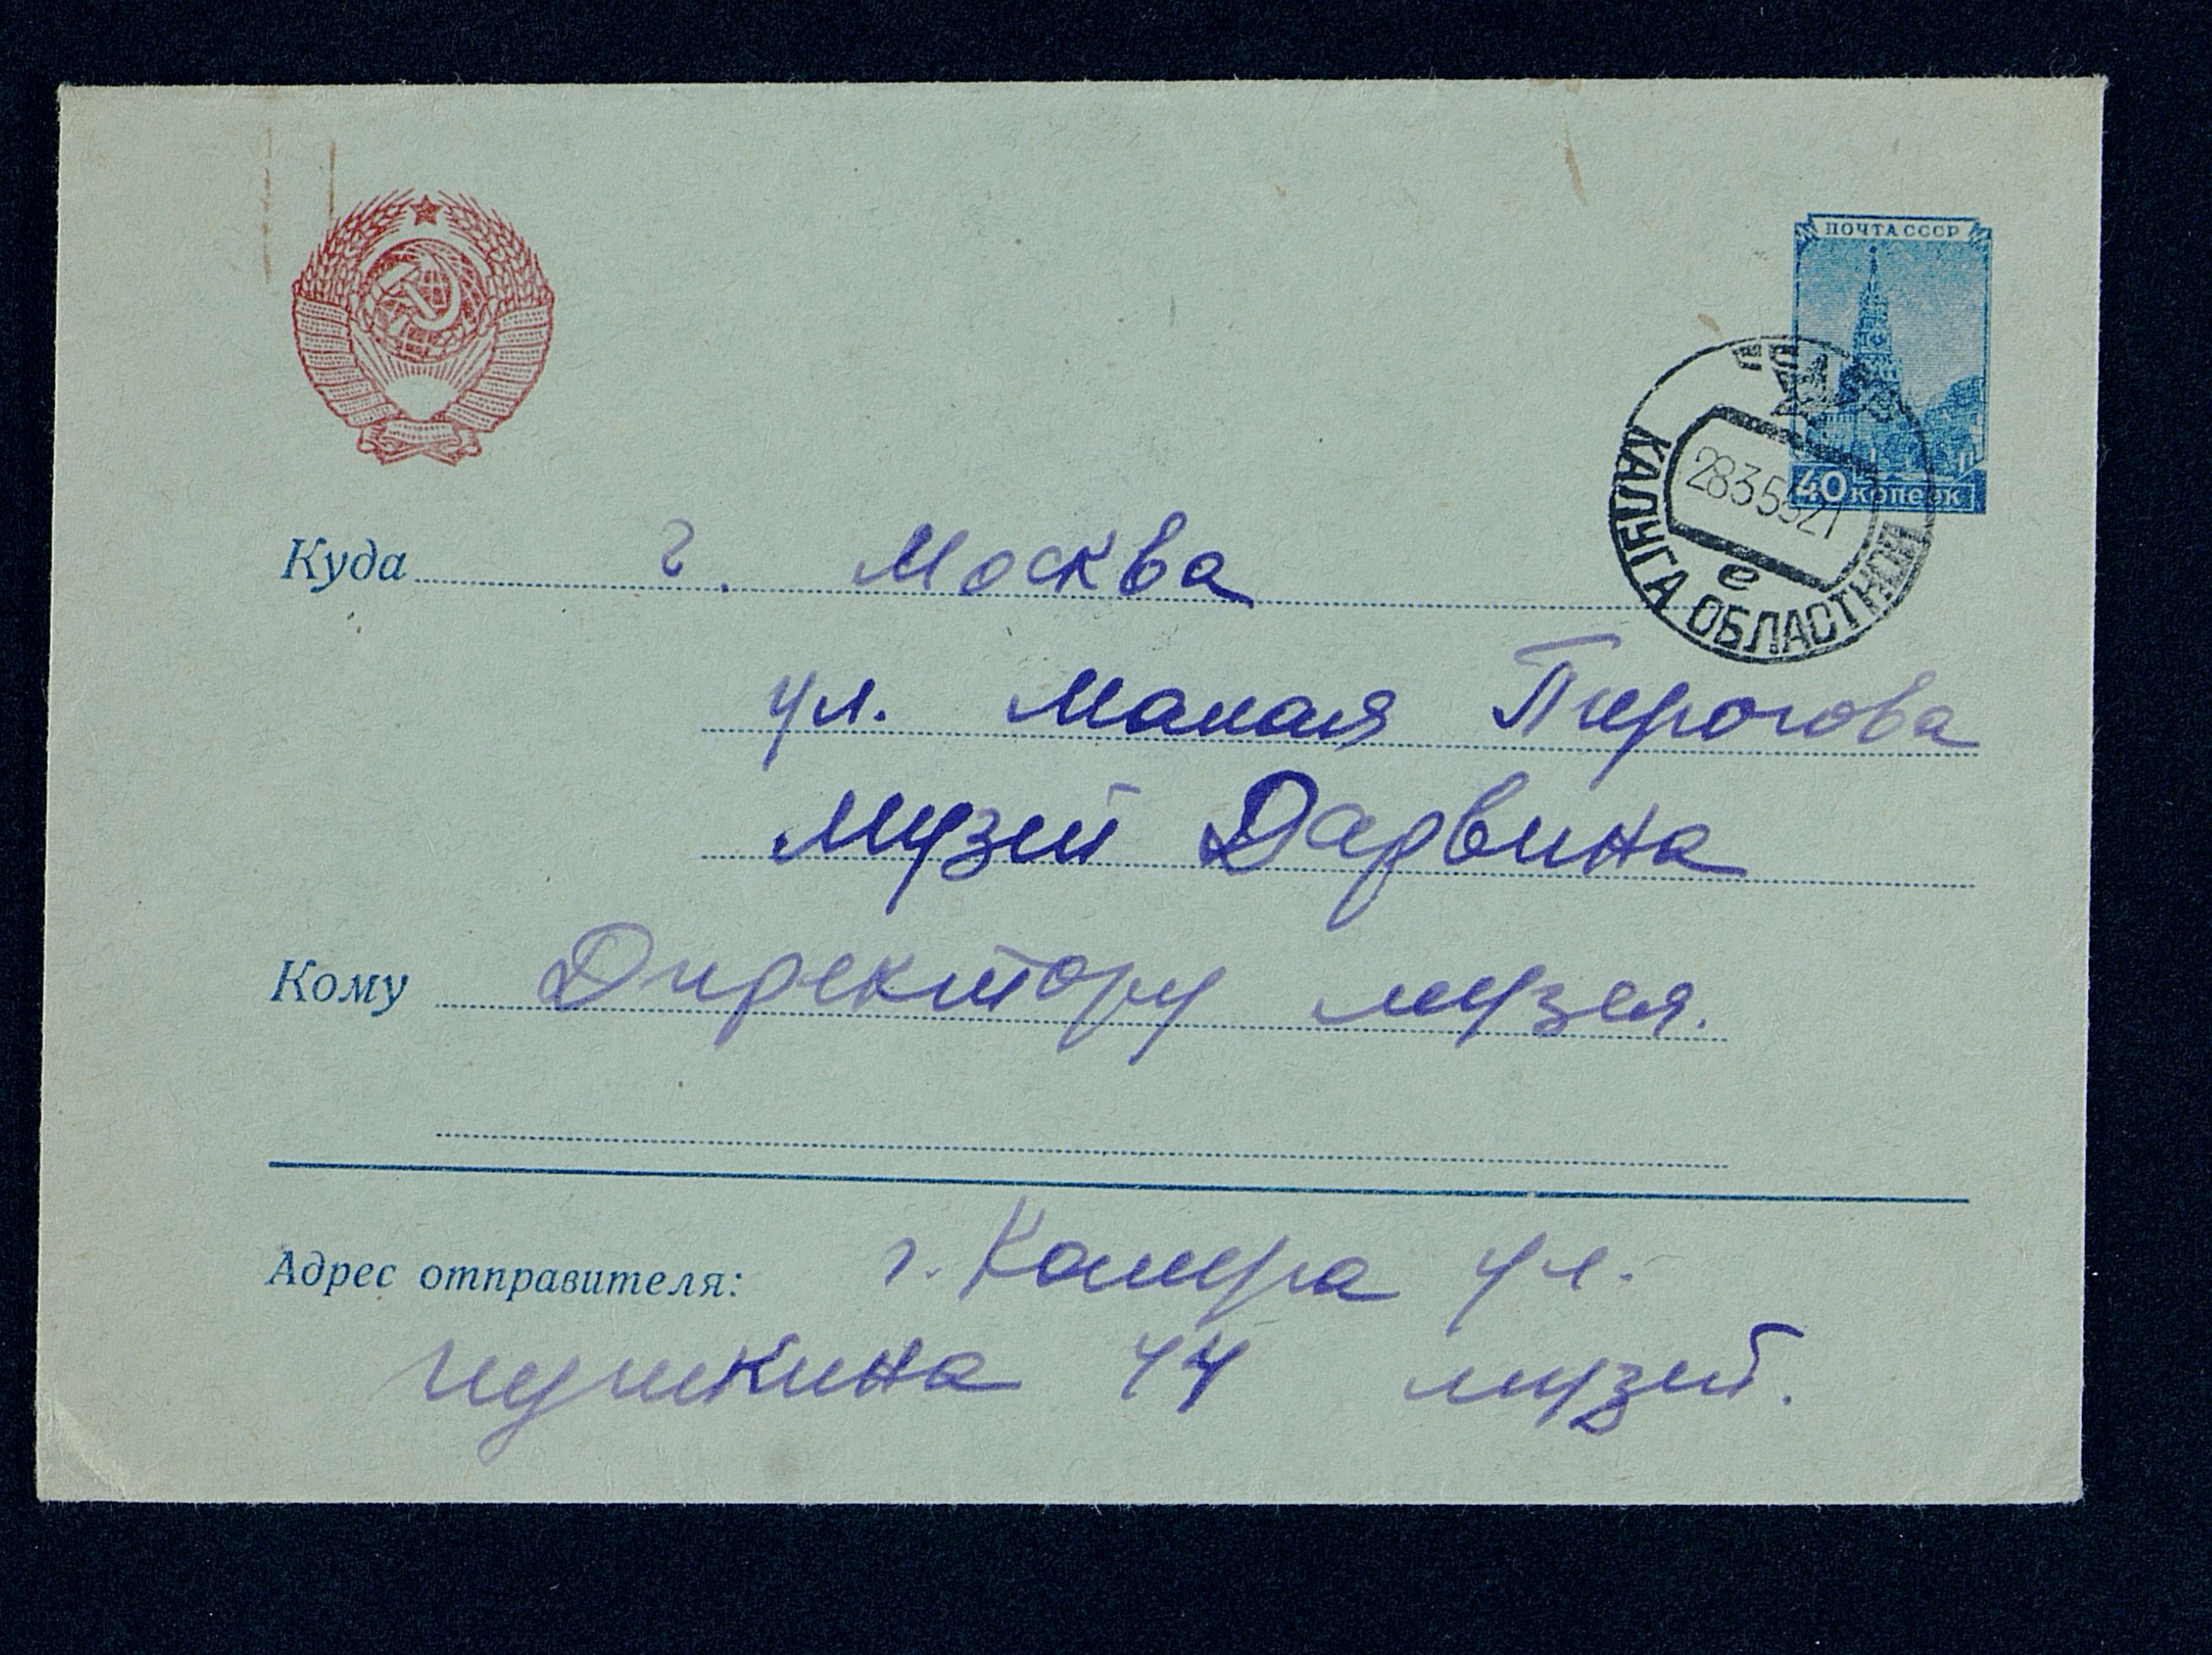 ПОЧТА СССР
40 копеек
КАЛУГА ОБЛАСТНОЙ
е
Куда г. Москва
ул. Малая Пирогова
музей Дарвина
Кому Директору музея.
Адрес отправителя: г. Калуга ул.
пушкина 14 музей.